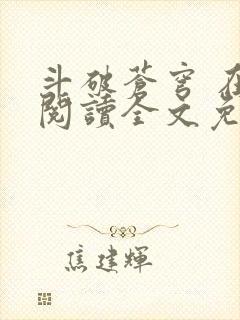 斗破蒼穹 在
閱讀全文免
焦建輝